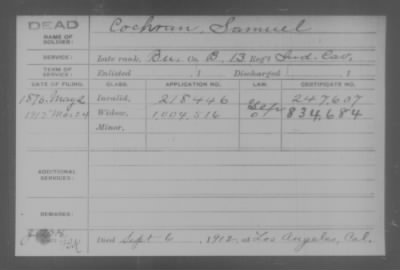 DEAD
NAME OF SOLDIER: Cochran, Samuel
SERVICE: Late rank, Bu. Co. B, 13 Reg't Ind. Cav.
TERM OF SERVICE: Enlisted , 1 Discharged , 1
DATE OF FILING. CLASS. APPLICATION NO. LAW. CERTIFICATE NO.
1876, May 2 Invalid, 218446 247,607
1912 Widow, 1,004,516 834,684
Minor,
ADDITIONAL SERVICES:
REMARKS:
Died Sept 6, 1912, at Los Angeles, Cal.